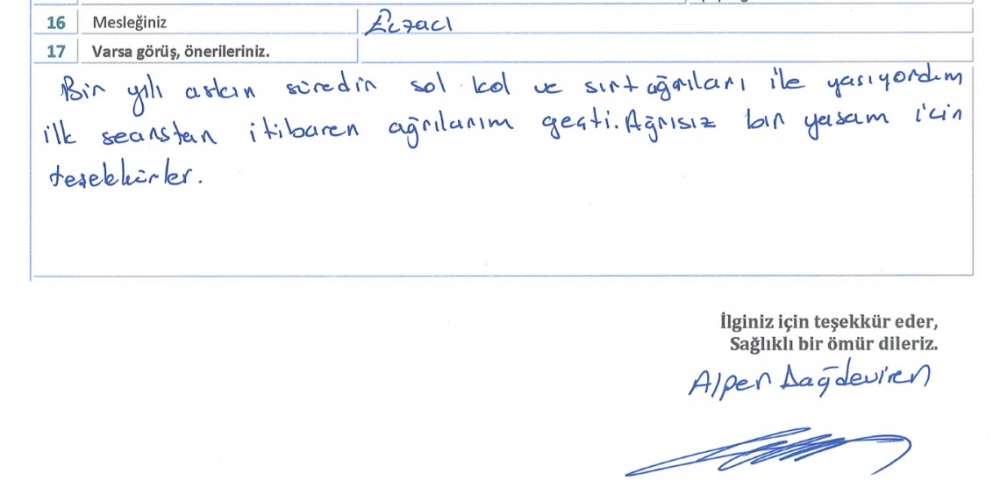 16 Mesleğiniz Eczacı
17 Varsa görüş, önerileriniz.
Bir yılı aşkın süredir sol kol ve sırt ağrıları ile yaşıyordum
ilk seanstan itibaren ağrılarım geçti. Ağrısız bir yaşam için
teşekkürler.
İlginiz için teşekkür eder,
Sağlıklı bir ömür dileriz.
Alper Dağdeviren